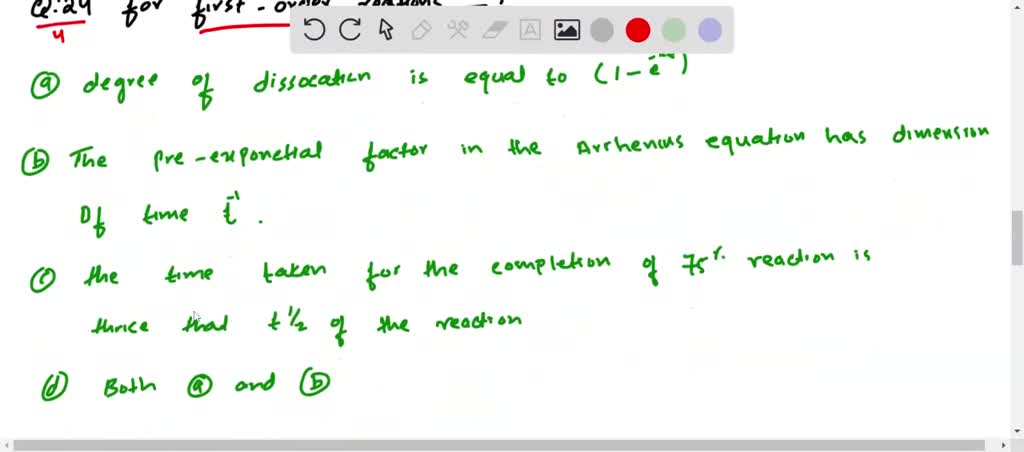 Q.24 for first-order
4
(a) degree of dissocation is equal to (1-e
(b) The pre-exponetial factor in the Arrhenius equation has dimension
Of time t⁻¹.
(c) the time taken for the completion of 75% reaction is
thrice that t½ of the reaction
(d) Both (a) and (b)